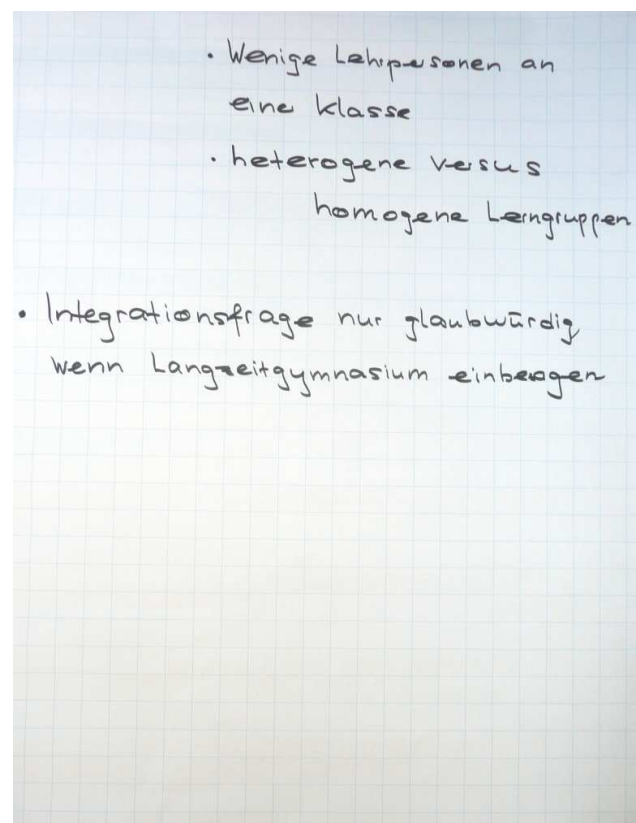 · Wenige Lehrpersonen an
eine Klasse
· heterogene versus
homogene Lerngruppen
· Integrationsfrage nur glaubwürdig
wenn Langzeitgymnasium einbezogen